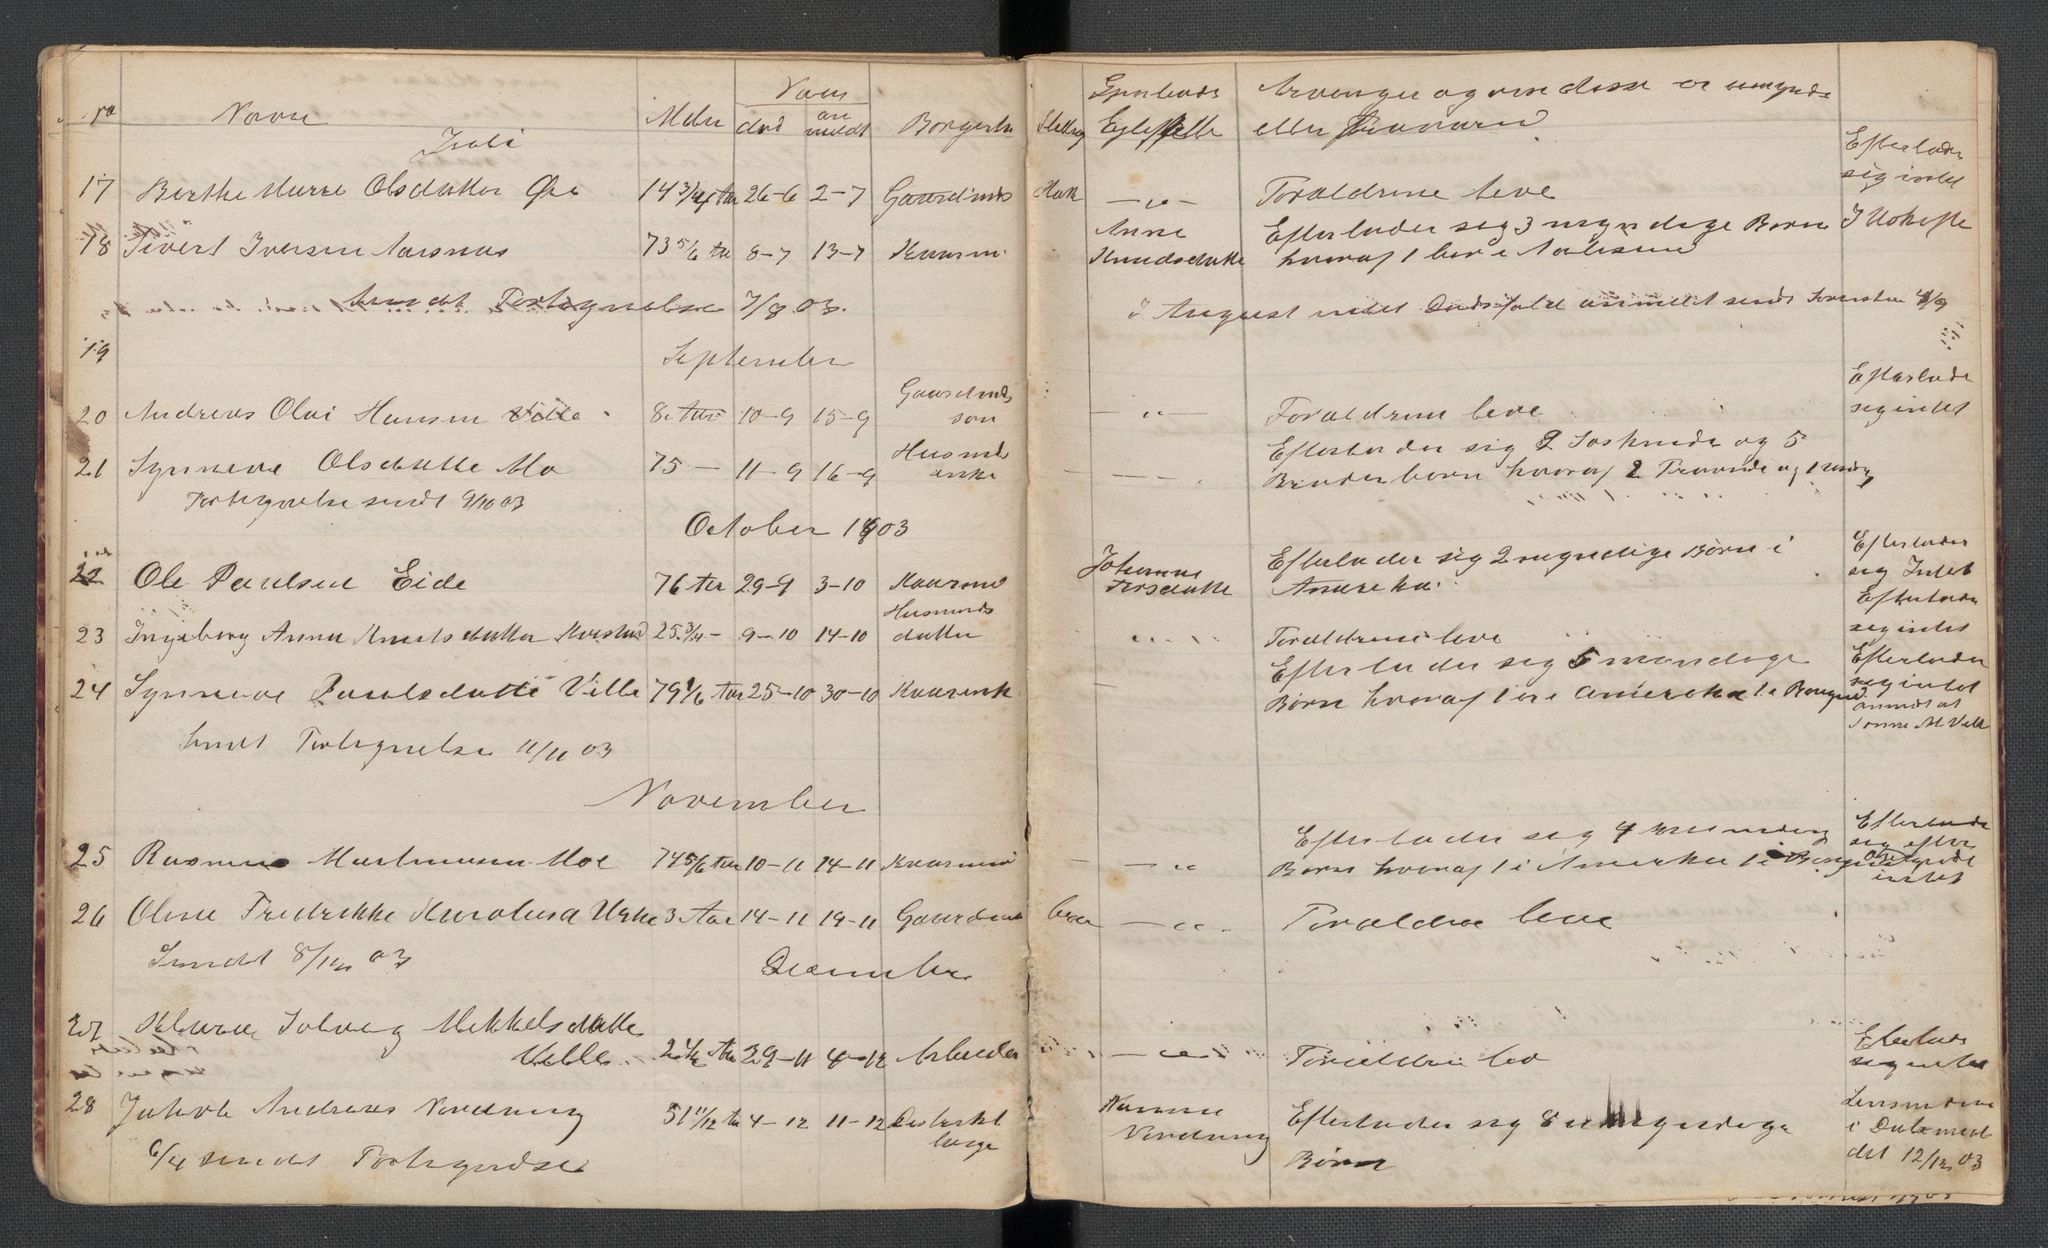 No Navne Alder Naar død an meldt Borgerlig Stilling Egtefelle Arvinger og om disse er umynde
eller Fraværend
Juli
17 Berthe Marie Olsdatter Øie 14 3/4 Aar 26-6 2-7 Gaardmds Datt -"- Foraldrene leve Efterlader sig intet
18 Sivert Iversen Aarsnæs 73 5/6 Aar 8-7 13-7 Kaarm. Anne Knudsdatte Efterlader sig 3 myndige Børn hvoraf 1 bor i Aalesund I Uskifte
Sendt Fortegnelse 7/8 03. I August intet Dødsfald anmeldt sendt
19
September
20 Andreas Olai Hansen Velle 8 Aar 10-9 15-9 Gaardmds søn -"- Foraldrene leve Efterlade sig intet
21 Synneve Olsdatte Mo 75 - 11-9 16-9 Husmds enke - - Efterlader sig 2 Søskende og 5
Broderbørn hvoraf 2 Fravænde og 1
Fortegnelse sendt 9/10 03
October 1903
22 Ole Paulsen Eide 76 Aar 29-9 3-10 Kaarmd Johanne Persdatte Efterlader sig 2 mynedige Børn i
Amereka. Efterlader sig Intet
23 Ingeborg Anna Knutsdatter 25 3/4 - 9-10 14-10 Husmds datter " " Foraldrene leve Efterlade sig intet
24 Synneve Paulsdatte Velle 79 1/6 Aar 25-10 30-10 Kaarenk - - Efterlader sig 5 møndige
Børn hvoraf 1 er i Amereka 1 i Efterlader sig intet anmeldt af Sønne M Velle
Sendt Fortegnelse 11/11 03
November
25 Rasmus Martinusen Moe 74 5/6 Aar 10-11 14-11 Kaarmd - " Efterlader sig 4 mundig
Børn hvoraf 1 i Amerka 1 i Efterlade sig efter intet
26 Oline Fredrikke Karolusd Urke 3 Aar 14-11 19-11 Gaardm - " . Foraldre leve
Sendt 8/12 03
December
27 Solveig Mekkelsdatte
Velle 2 1/2 Aar 29-11 4-12 Arbeider - " Foraldre lev Efterlade sig intet
28 Jakob Andreas Nordang 51 11/12 Aar 4-12 11-12 Desterkt læge Nanna Nordang Efterlader sig 8 umyndige
Børn Lensmdne i Dale med delt 12/12 03
6/4 sendt Fortegnelse